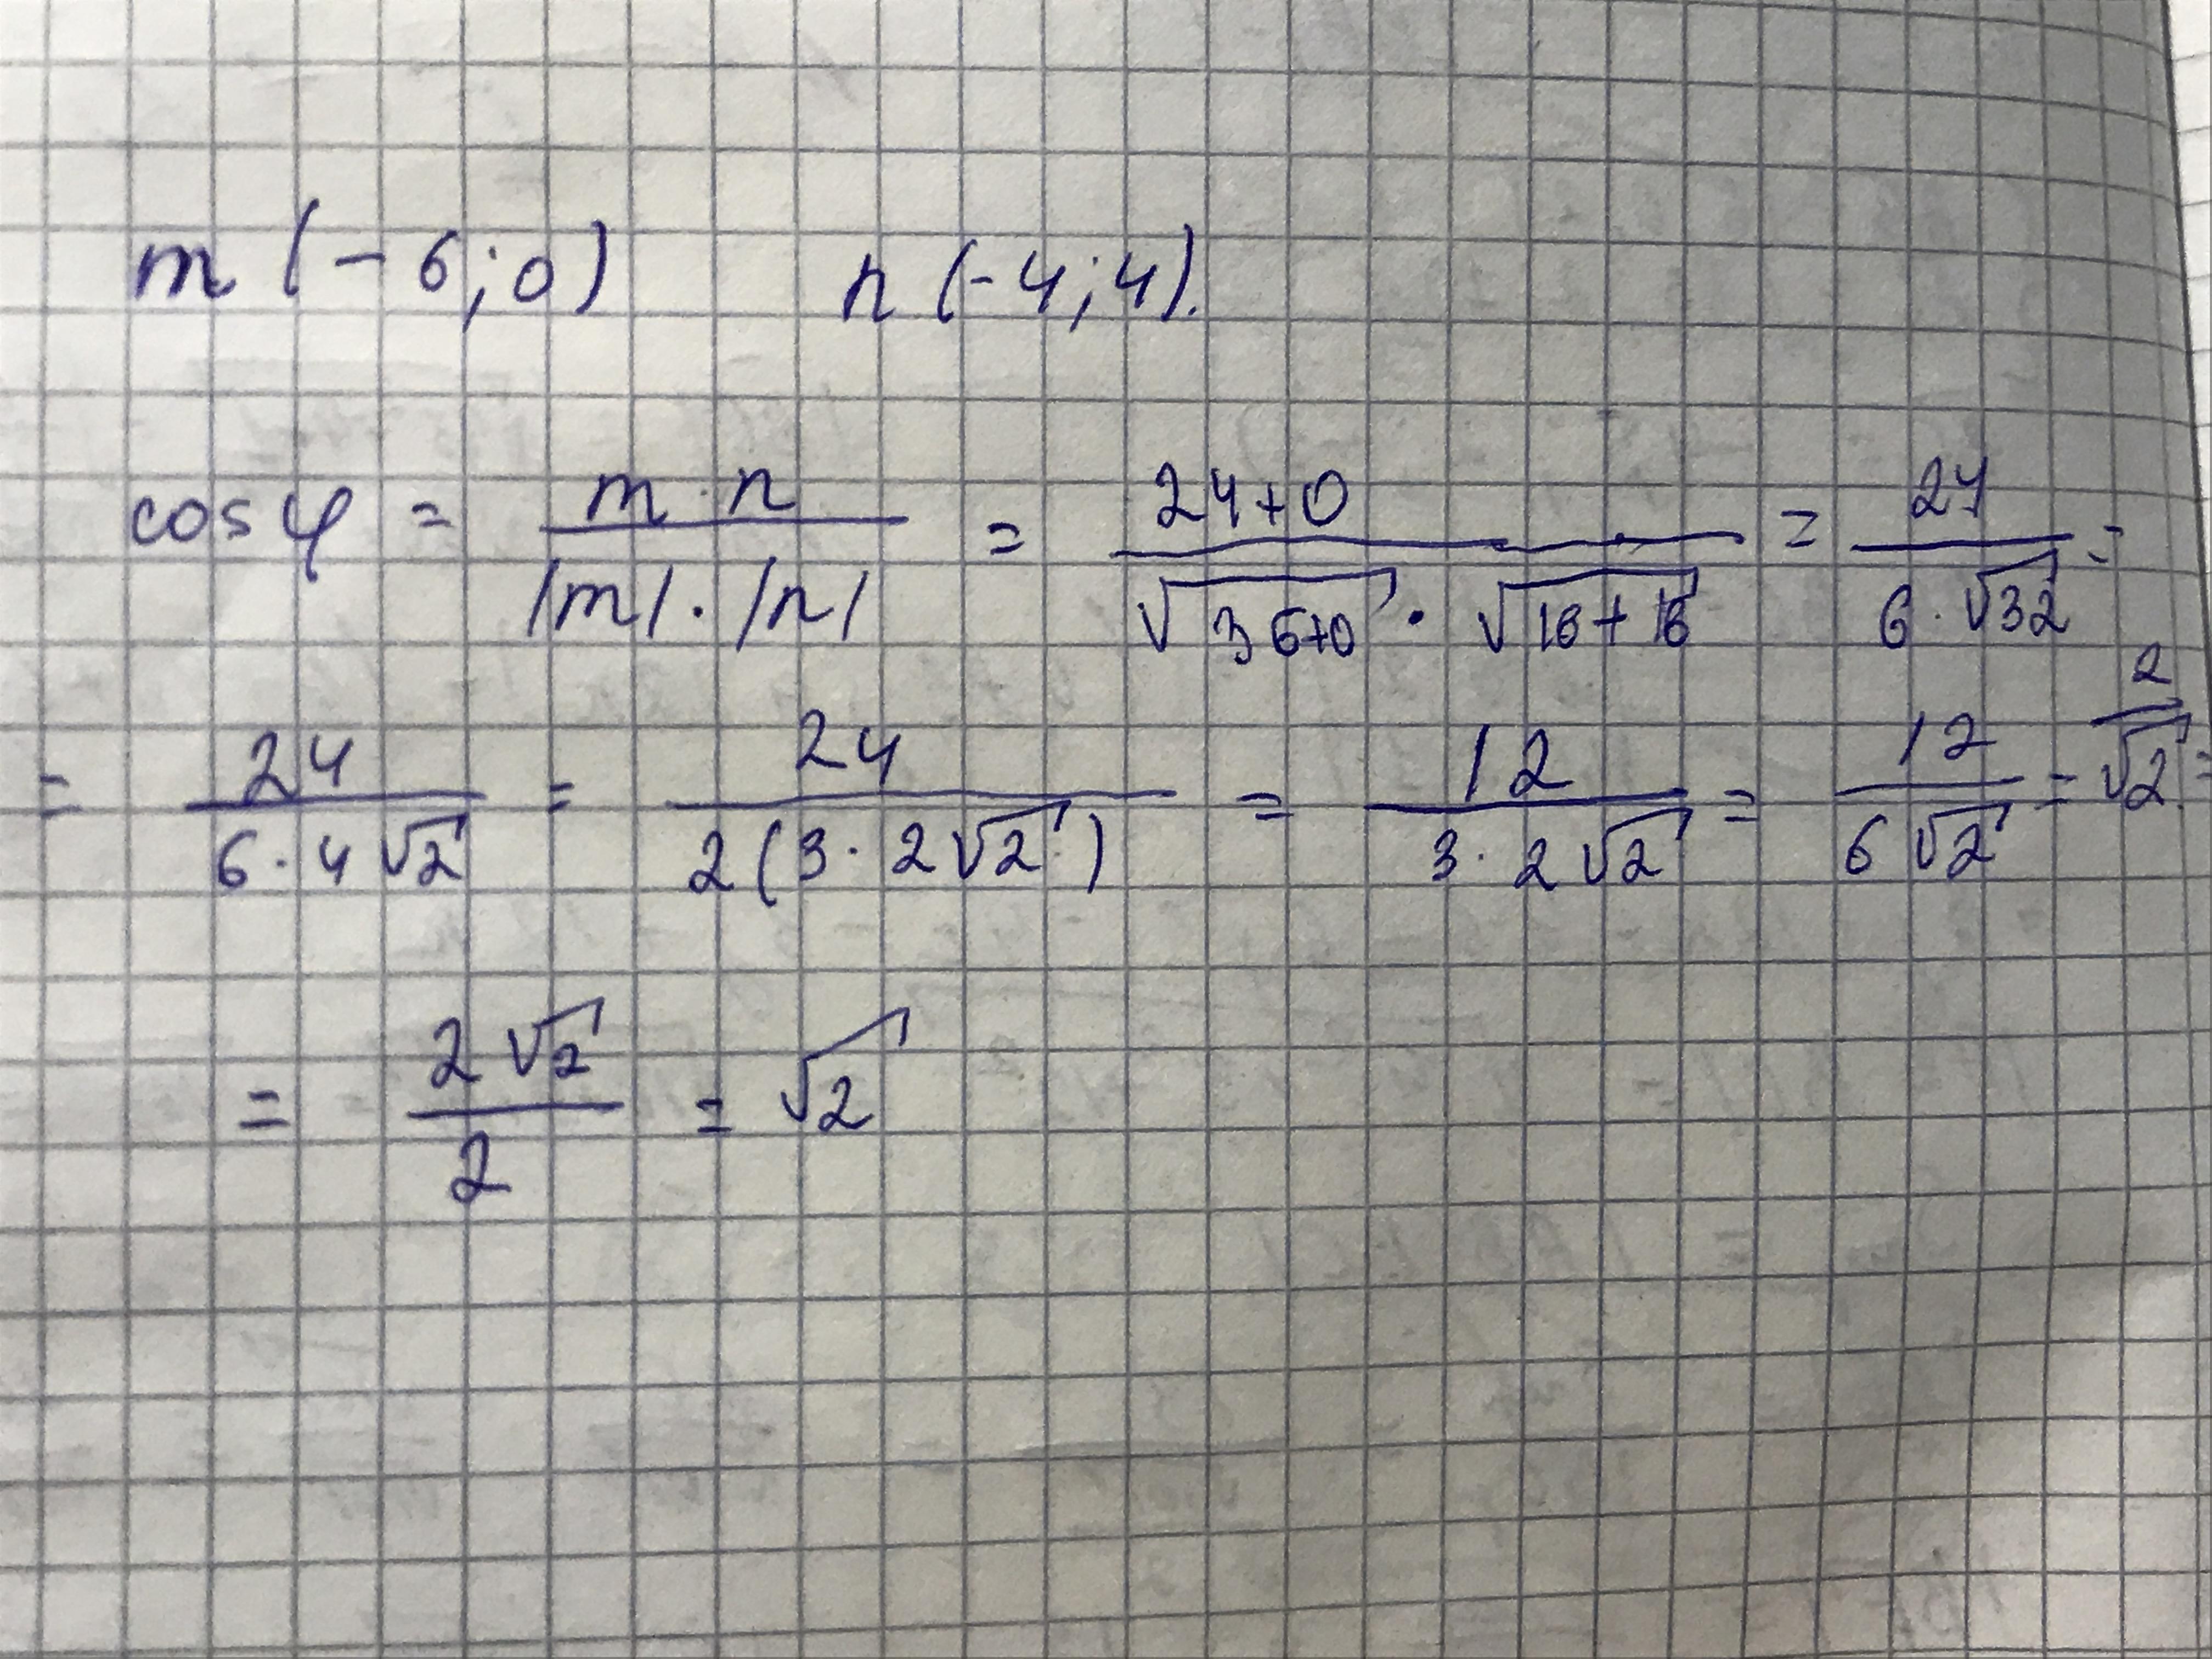 m (-6;0) n (-4;4).
cos φ = m·n / |m|·|n| = 24+0 / √36+0 · √16+16 = 24 / 6·√32 =
= 24 / 6·4√2 = 24 / 2(3·2√2) = 12 / 3·2√2 = 12 / 6√2 = 2 / √2 =
= 2√2 / 2 = √2